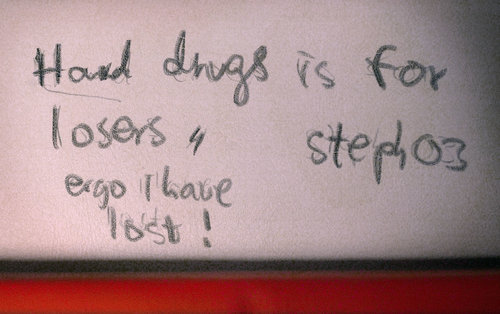 Hard drugs is for
losers "
steph03
ergo i have
lost !